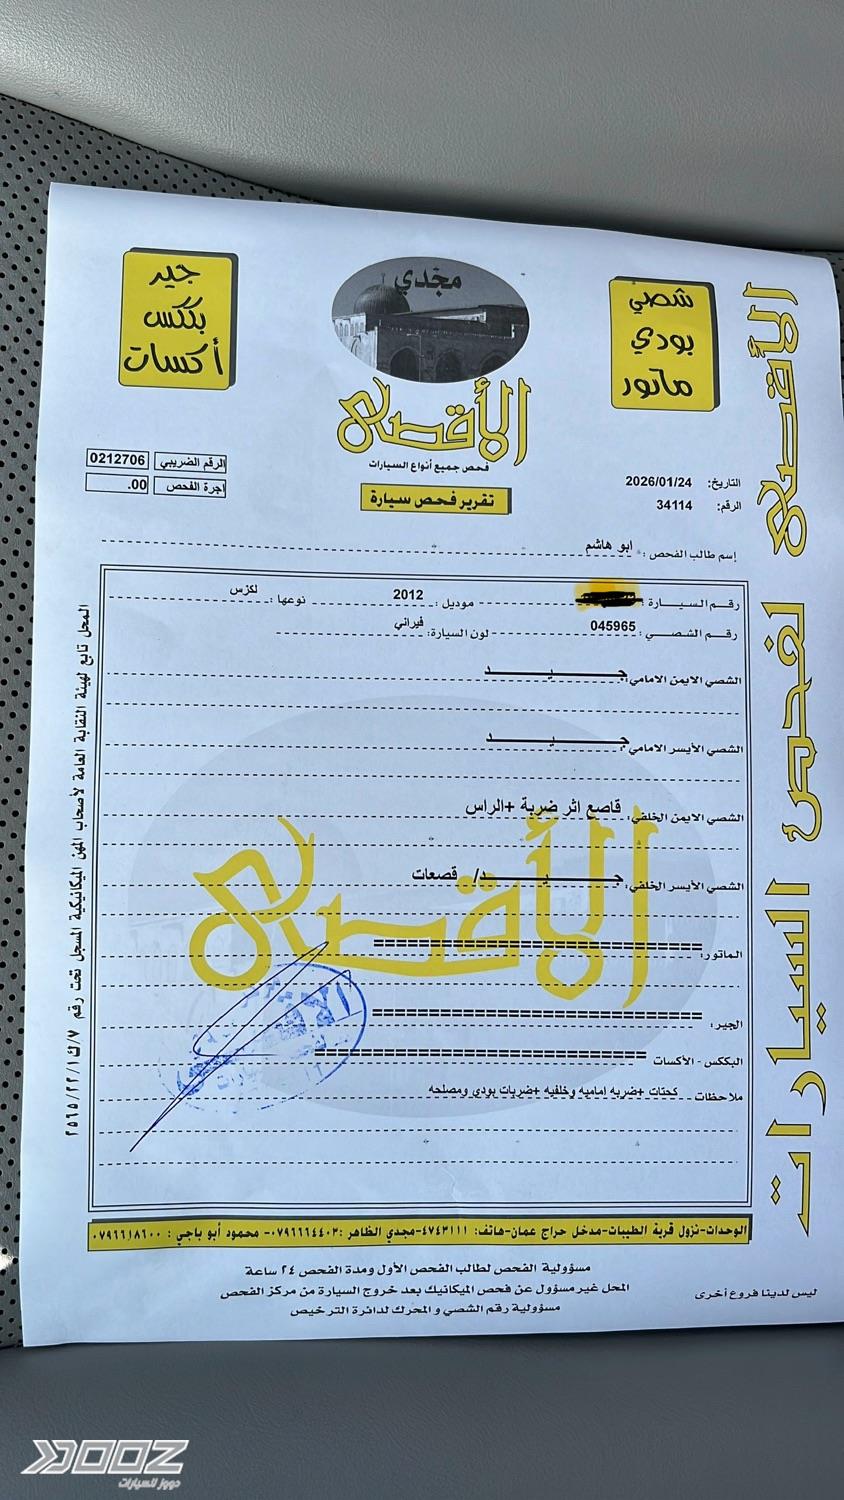 جير
بكس
أكسات
مجدي
شصي
بودي
ماتور
الأقصى
فحص جميع أنواع السيارات
تقرير فحص سيارة
الرقم الضريبي 0212706
اجرة الفحص .00
التاريخ: 2026/01/24
الرقم: 34114
إسم طالب الفحص : ابو هاشم
رقم السيارة : موديل : 2012 نوعها : لكزس
رقم الشصي : 045965 لون السيارة: فيراني
الشصي الايمن الامامي: جـــيـــد
الشصي الأيسر الامامي: جـــيـــد
الشصي الايمن الخلفي: قاصع اثر ضربة +الراس
الشصي الأيسر الخلفي: جـــيـــد/ قصعات
الماتور: ==============================
الجير: ==============================
البككس - الأكسات ==============================
ملاحظات كحتات +ضربه اماميه وخلفيه +ضربات بودي ومصلحه
الأقصى
الأقصى لفحص السيارات
المحل تابع لهيئة النقابة العامة لأصحاب المهن الميكانيكية المسجل تحت رقم ٧/ك/٢٢/١/٢٥٦٥
الوحدات-نزول قرية الطيبات-مدخل حراج عمان-هاتف: ٤٧٤٣١١١-مجدي الظاهر :٠٧٩٦٦٦٤٤٠٣- محمود أبو باجي : ٠٧٩٦٦١٨٦٠٠
مسؤولية الفحص لطالب الفحص الأول ومدة الفحص ٢٤ ساعة
المحل غير مسؤول عن فحص الميكانيك بعد خروج السيارة من مركز الفحص
مسؤولية رقم الشصي و المحرك لدائرة الترخيص
ليس لدينا فروع أخرى
DOOZ
دووز للسيارات